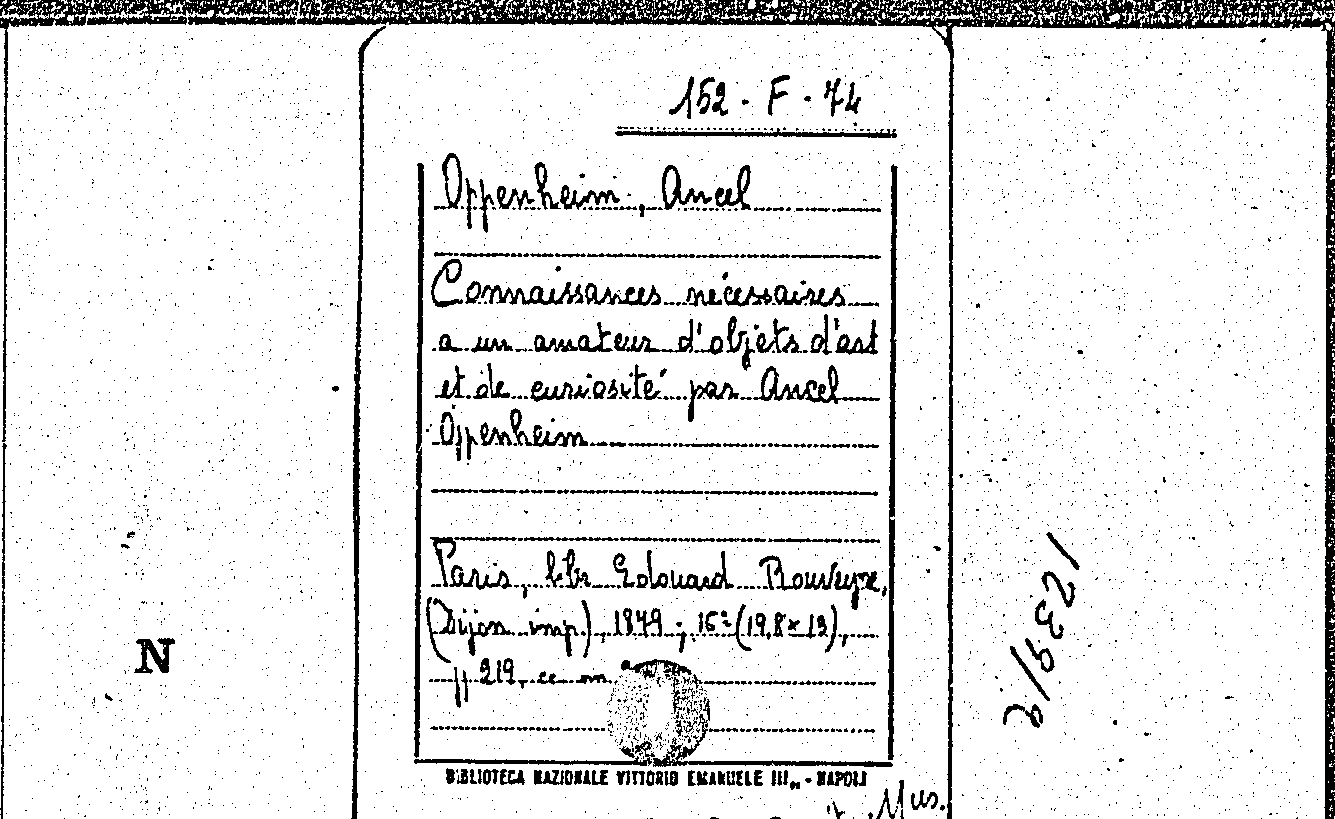 152 · F · 74
Oppenheim, Ancel
Connaissances nécessaires
a un amateur d'objets d'art
et de curiosité par Ancel
Oppenheim
Paris, libr Edouard Rouveyre,
(Dijon imp.), 1879; 16° (19,8 × 13),
pp 219, cc nn
N
1239/2
BIBLIOTECA NAZIONALE VITTORIO EMANUELE III„ - NAPOLI
Mus.